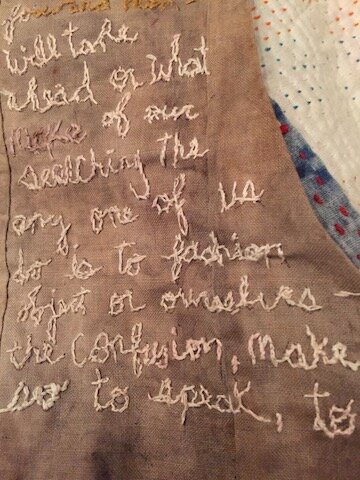 forward
will take
ahead or what
make of our
searching the
any one of us
do is to fashion
object or ourselves –
the confusion, make
so to speak, to